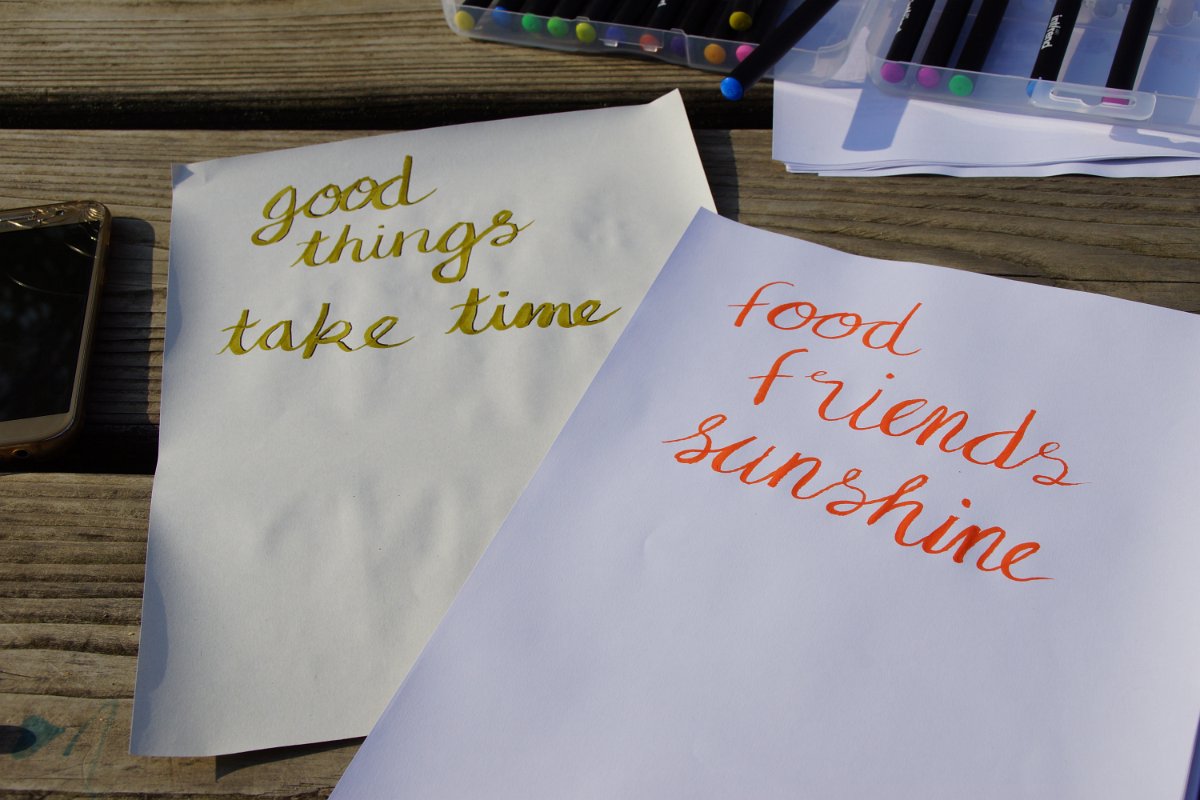 good
things
take time
food
friends
sunshine